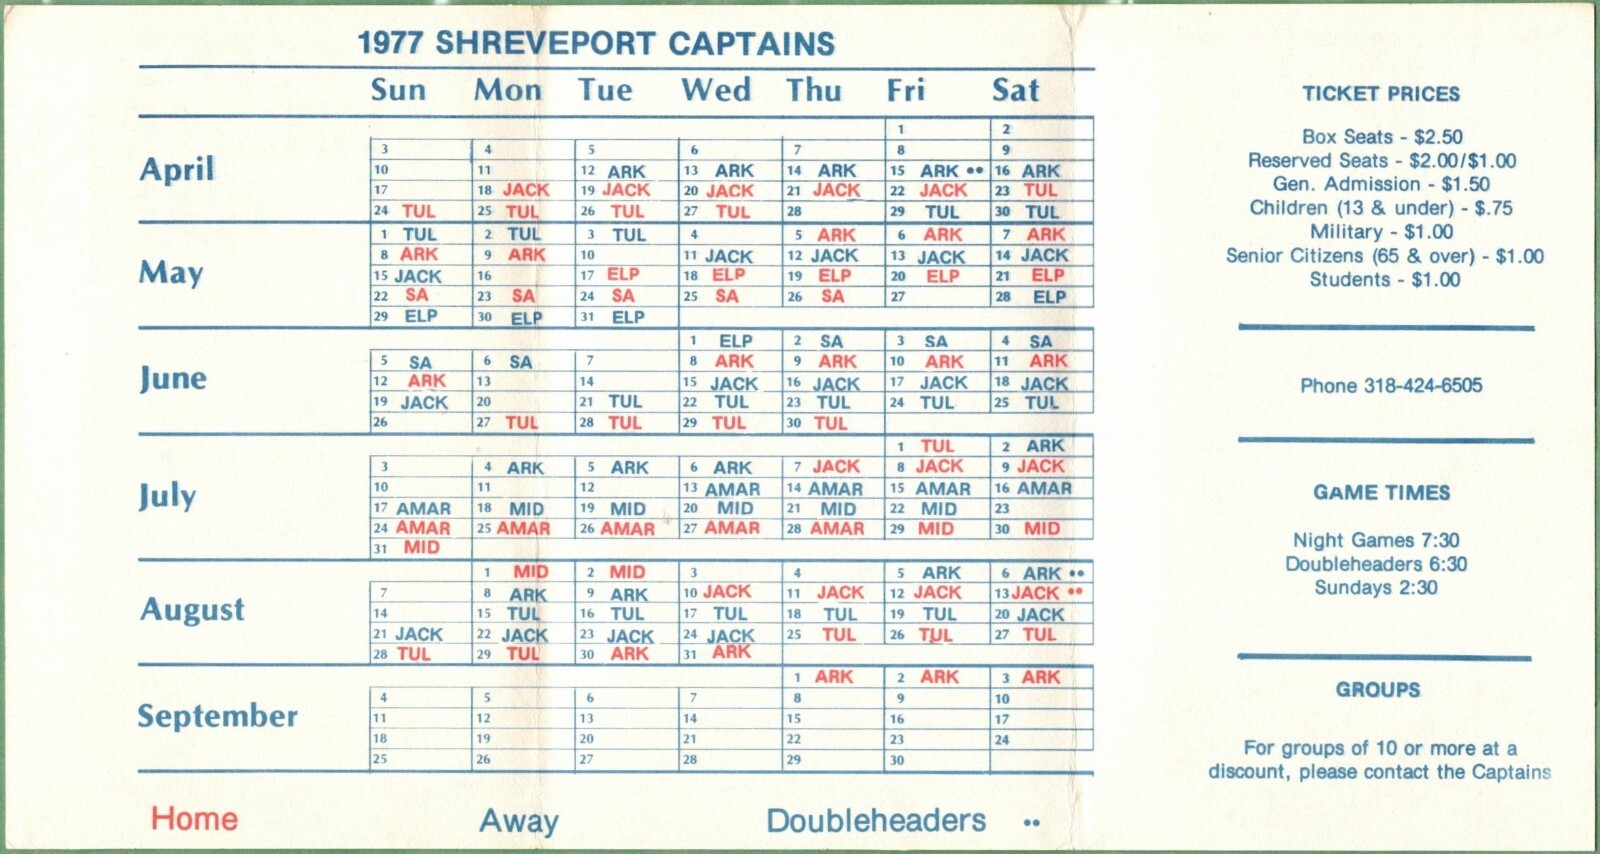 1977 SHREVEPORT CAPTAINS
Sun Mon Tue Wed Thu Fri Sat
April
1 2
3 4 5 6 7 8 9
10 11 12 ARK 13 ARK 14 ARK 15 ARK •• 16 ARK
17 18 JACK 19 JACK 20 JACK 21 JACK 22 JACK 23 TUL
24 TUL 25 TUL 26 TUL 27 TUL 28 29 TUL 30 TUL
May
1 TUL 2 TUL 3 TUL 4 5 ARK 6 ARK 7 ARK
8 ARK 9 ARK 10 11 JACK 12 JACK 13 JACK 14 JACK
15 JACK 16 17 ELP 18 ELP 19 ELP 20 ELP 21 ELP
22 SA 23 SA 24 SA 25 SA 26 SA 27 28 ELP
29 ELP 30 ELP 31 ELP
June
1 ELP 2 SA 3 SA 4 SA
5 SA 6 SA 7 8 ARK 9 ARK 10 ARK 11 ARK
12 ARK 13 14 15 JACK 16 JACK 17 JACK 18 JACK
19 JACK 20 21 TUL 22 TUL 23 TUL 24 TUL 25 TUL
26 27 TUL 28 TUL 29 TUL 30 TUL
July
1 TUL 2 ARK
3 4 ARK 5 ARK 6 ARK 7 JACK 8 JACK 9 JACK
10 11 12 13 AMAR 14 AMAR 15 AMAR 16 AMAR
17 AMAR 18 MID 19 MID 20 MID 21 MID 22 MID 23
24 AMAR 25 AMAR 26 AMAR 27 AMAR 28 AMAR 29 MID 30 MID
31 MID
August
1 MID 2 MID 3 4 5 ARK 6 ARK ••
7 8 ARK 9 ARK 10 JACK 11 JACK 12 JACK 13 JACK ••
14 15 TUL 16 TUL 17 TUL 18 TUL 19 TUL 20 JACK
21 JACK 22 JACK 23 JACK 24 JACK 25 TUL 26 TUL 27 TUL
28 TUL 29 TUL 30 ARK 31 ARK
September
1 ARK 2 ARK 3 ARK
4 5 6 7 8 9 10
11 12 13 14 15 16 17
18 19 20 21 22 23 24
25 26 27 28 29 30
Home Away Doubleheaders ••
TICKET PRICES
Box Seats - $2.50
Reserved Seats - $2.00/$1.00
Gen. Admission - $1.50
Children (13 & under) - $.75
Military - $1.00
Senior Citizens (65 & over) - $1.00
Students - $1.00
Phone 318-424-6505
GAME TIMES
Night Games 7:30
Doubleheaders 6:30
Sundays 2:30
GROUPS
For groups of 10 or more at a
discount, please contact the Captains